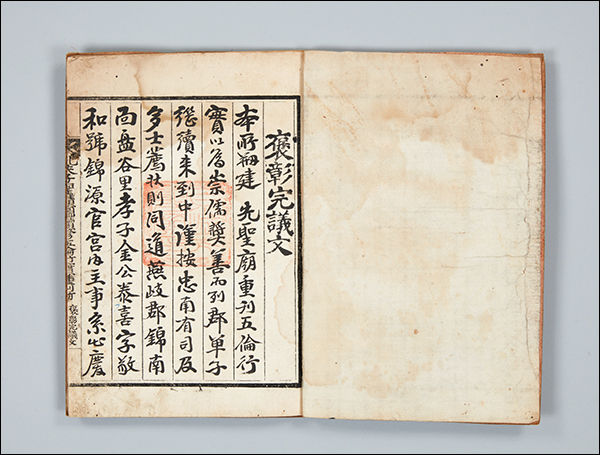 褒彰完議文
本所刱建 先聖廟重刊五倫行
實以爲崇儒奬善而列郡單子
繼續来到中謹按忠南有司及
多士薦狀則同道燕岐郡錦南
面盘谷里孝子金公泰喜字敬
和號錦源官宮内主事系出慶
褒彰完議文